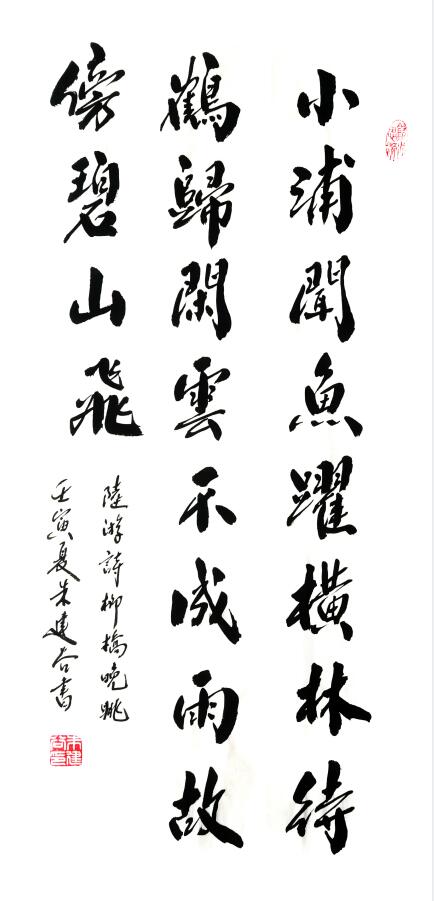 小浦聞魚躍橫林待
鶴歸閑雲不成雨故
傍碧山飛
陸游詩柳橋晚眺
壬寅夏朱建谷書